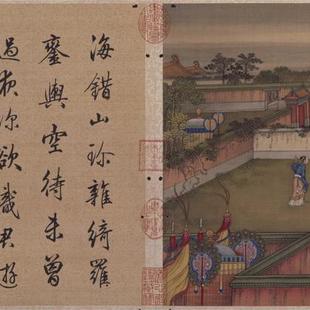 海錯山珍雜綺羅
鑾輿空待未曾
過夜深欲識君遊